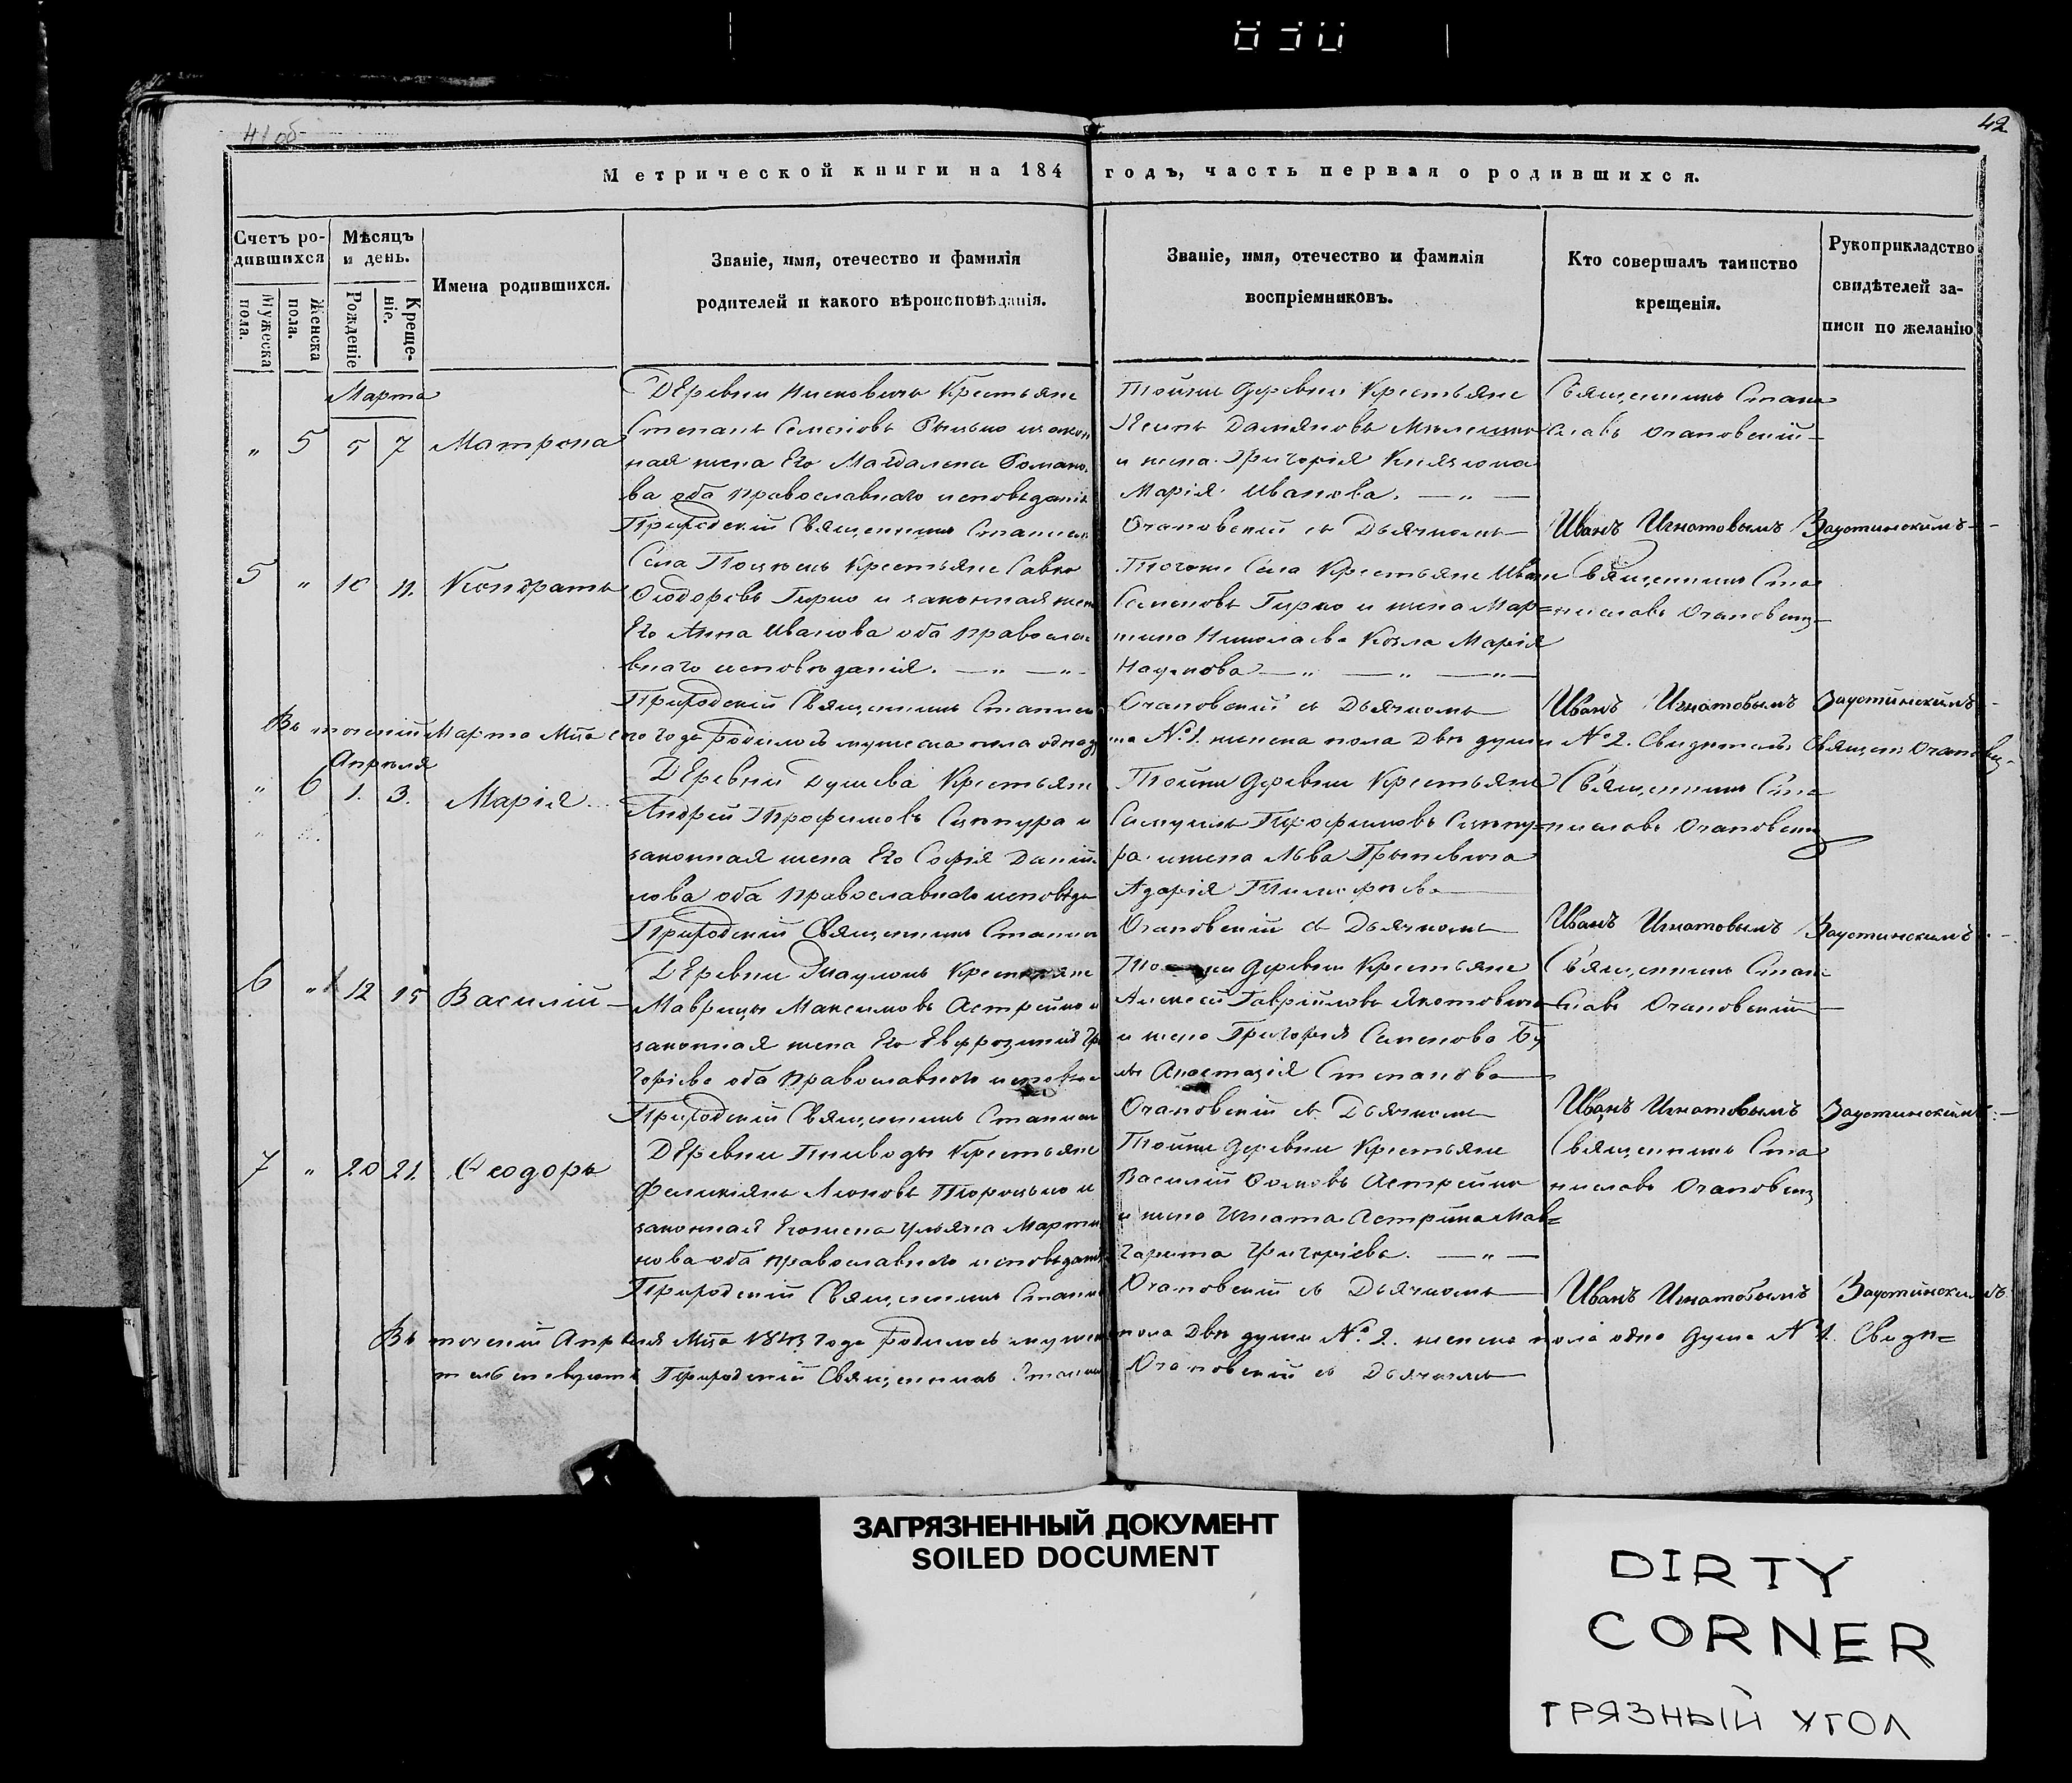 41 об
42
Метрической книги на 184 годъ, часть первая о родившихся.
Счетъ ро-
дившихся
Мужеска
пола.
Женска
пола.
Мѣсяцъ
и день.
Рожденіе
Креще-
ніе.
Имена родившихся.
Званіе, имя, отечество и фамилія
родителей и какого вѣроисповѣданія.
Званіе, имя, отечество и фамилія
воспріемниковъ.
Кто совершалъ таинство
крещенія.
Рукоприкладство
свидѣтелей за-
писи по желанію
Марта
„ 5 5 7 Матрона
Деревни Крестьяне
Степанъ Семеновъ
ная жена Его Магдалена Романо-
ва оба православнаго исповѣданія
Тойже деревни Крестьяне
Дамяновъ
и жена Григорія
Марія Иванова. — „ —
Священникъ Стани
славъ Очановскій
Приходскій Священникъ Станисл
Очановскій съ Дьячкомъ
Иванъ Игнатовымъ Заустинскимъ
5 „ 10 11. Кондратъ
Села Крестьяне Савва
Ѳеодоровъ Гирко и законная жена
Его Анна Иванова оба правосла-
внаго исповѣданія. — „ — „ -
Тогоже Села Крестьяне Иванъ
Семеновъ Гирко и жена Мар=
тина Николаева Козла Марія
Наумова — „ — „ — „ —
Священникъ Ста
ниславъ Очановскій
Приходскій Священникъ Станисл
Очановскій съ Дьячкомъ
Иванъ Игнатовымъ Заустинскимъ
Въ теченіи Марта Мца сего года родилось мужеска пола одна душа № 1. женска пола двѣ души № 2. Свидѣтель Священ. Очановскій
Апрѣля
„ 6 1. 3. Марія
Деревни Крестьяне
Андрей Трофимовъ и
законная жена Его Софія Даніи-
лова оба православнаго исповѣда
Тойже деревни Крестьяне
Трофимовъ
ра и жена Льва
Священникъ Ста
ниславъ Очановскій
Приходскій Священникъ Станисл
Очановскій съ Дьячкомъ
Иванъ Игнатовымъ Заустинскимъ
6 „ 12 15 Василій
Деревни Крестьяне
Маврицы Максимовъ Астрейко и
законная жена Его Евфрозинія Гри
горіева оба православнаго исповѣд
Тойже деревни Крестьяне
Алексей Гавриловъ
и жена Григорія Семенова
Анастазія Степанова
Священникъ Стани
славъ Очановскій
Приходскій Священникъ Станисл
Очановскій съ Дьячкомъ
Иванъ Игнатовымъ Заустинскимъ
7 „ 20 21. Ѳеодоръ
Деревни Крестьяне
Леоновъ и
законная Его жена Ульяна Марти
нова оба православнаго исповѣданія
Тойже деревни Крестьяне
Василій Астрейко
и жена Игната Астрейка Мар=
гарита Григоріева. — „ —
Священникъ Ста
ниславъ Очановскій
Приходскій Священникъ Станисл
Очановскій съ Дьячкомъ
Иванъ Игнатовымъ Заустинскимъ
Въ теченіи Апрѣля Мца 1843 года родилось мужеска пола двѣ души № 2. женска пола одна душа № 1. Свидѣ=
тельствуютъ Приходскій Священникъ Станисл Очановскій съ Дьячкомъ
ЗАГРЯЗНЕННЫЙ ДОКУМЕНТ
SOILED DOCUMENT
DIRTY
CORNER
ГРЯЗНЫЙ УГОЛ